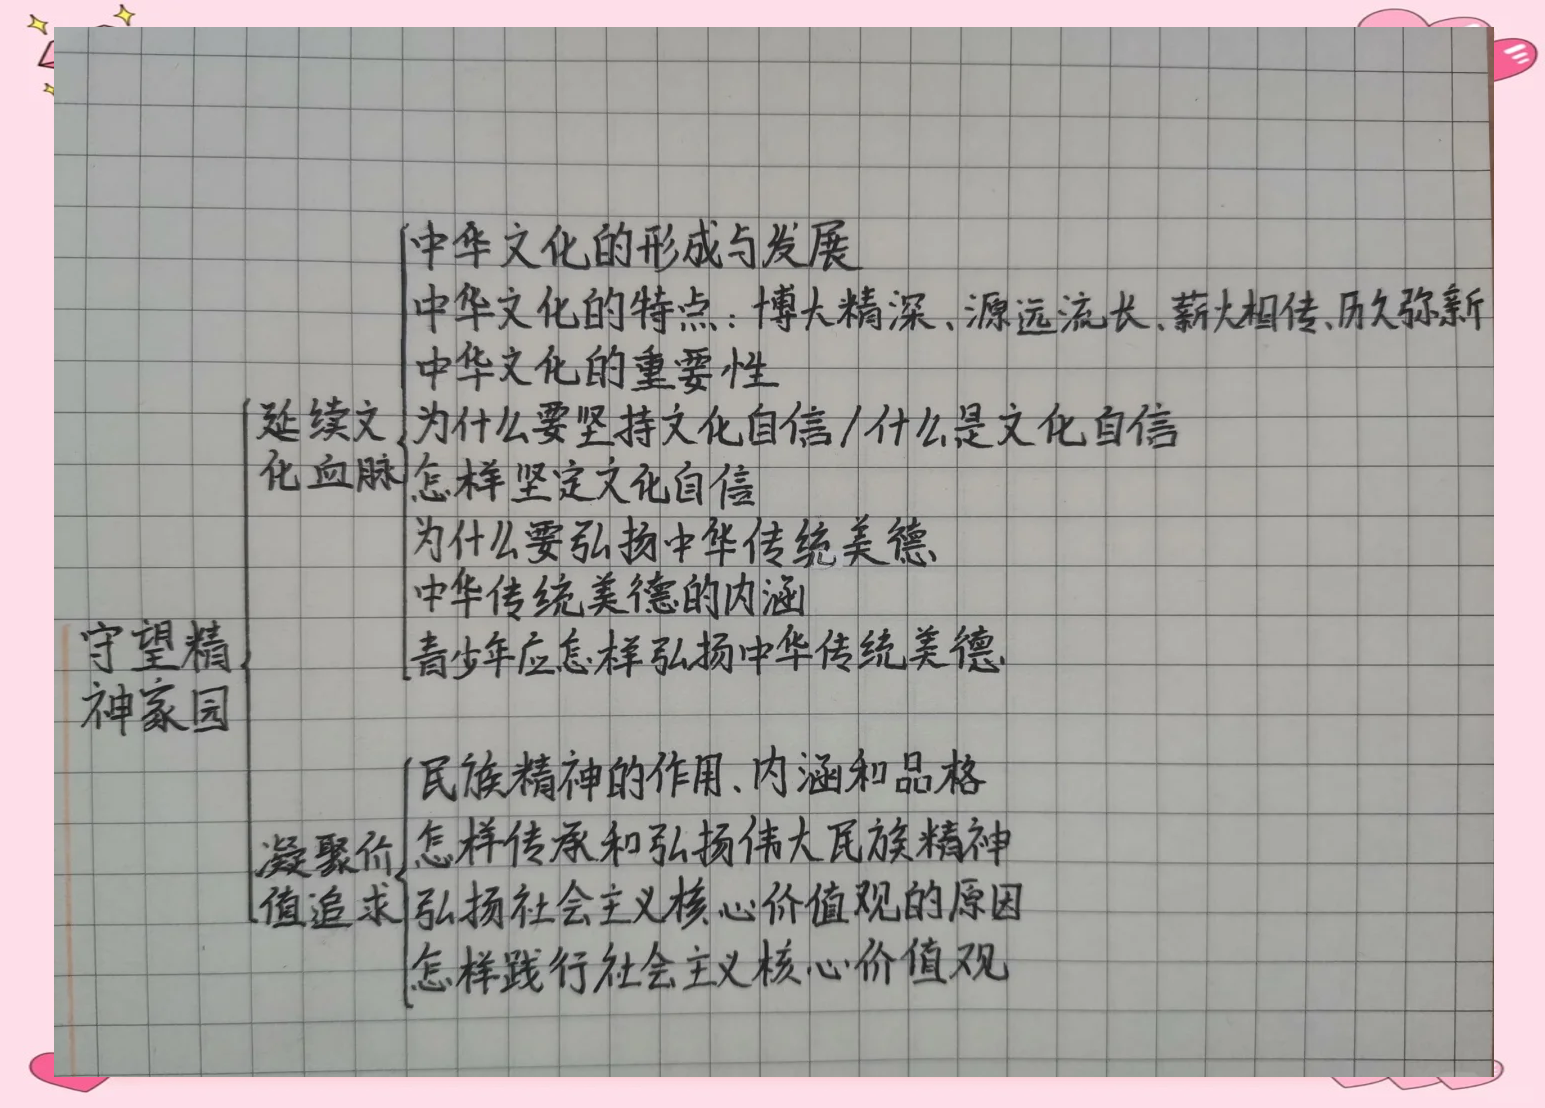 中华文化的形成与发展
中华文化的特点：博大精深、源远流长、薪火相传、历久弥新
中华文化的重要性
延续文
化血脉
为什么要坚持文化自信/什么是文化自信
怎样坚定文化自信
为什么要弘扬中华传统美德
中华传统美德的内涵
青少年应怎样弘扬中华传统美德
守望精
神家园
民族精神的作用、内涵和品格
凝聚价
值追求
怎样传承和弘扬伟大民族精神
弘扬社会主义核心价值观的原因
怎样践行社会主义核心价值观